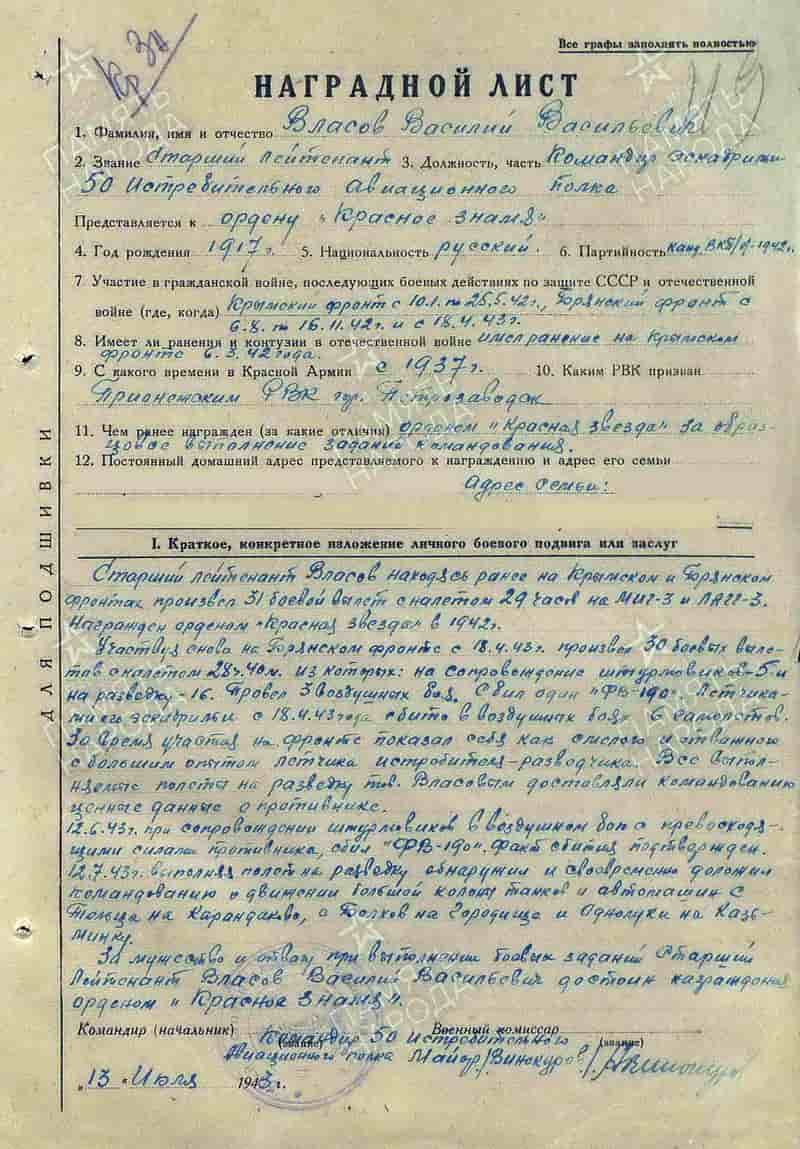 Кр Зн
Все графы заполнять полностью
119
НАГРАДНОЙ ЛИСТ
1. Фамилия, имя и отчество Власов Василий Васильевич
2. Звание Старший Лейтенант 3. Должность, часть Командир эскадрильи
50 Истребительного Авиационного полка
Представляется к ордену "Красное знамя"
4. Год рождения 1917 г. 5. Национальность русский. 6. Партийность канд. ВКП/б/-1942 г.
7 Участие в гражданской войне, последующих боевых действиях по защите СССР и отечественной
войне (где, когда) Крымский фронт с 10.1. по 25.5.42 г., Брянский фронт с
6.8. по 16.11.42 г. и с 18.4.43 г.
8. Имеет ли ранения и контузии в отечественной войне имел ранение на Крымском
фронте 6.3.42 года.
9. С какого времени в Красной Армии с 1937 г. 10. Каким РВК призван
Прионежским РВК гор. Петрозаводск
11. Чем ранее награжден (за какие отличия) орденом "Красная звезда" за образ-
цовое выполнение заданий командования.
12. Постоянный домашний адрес представляемого к награждению и адрес его семьи
Адрес семьи:
I. Краткое, конкретное изложение личного боевого подвига или заслуг
Старший лейтенант Власов находясь ранее на Крымском и Брянском
фронтах произвел 31 боевой вылет с налетом 29 часов на МИГ-3 и ЛАГГ-3.
Награжден орденом "Красная звезда" в 1942 г.
Участвуя снова на Брянском фронте с 18.4.43 г. произвел 30 боевых выле-
тов с налетом 28 ч. 40 м. из которых: на сопровождение штурмовиков-5 и
на разведку-16. Провел 3 воздушных боя. Сбил один "ФВ-190". Летчика-
ми его эскадрильи с 18.4.43 года сбито в воздушных боях 6 самолетов.
За время участия на фронте показал себя как смелого и отважного
с большим опытом летчика истребителя-разведчика. Все выпол-
няемые полеты на разведку тов. Власовым доставляли командованию
ценные данные о противнике.
12.6.43 г. при сопровождении штурмовиков в воздушном бою с превосходя-
щими силами противника, сбил "ФВ-190". Факт сбития подтвержден.
12.7.43 г. выполняя полет на разведку обнаружил и своевременно доложил
командованию о движении большой колонны танков и автомашин с
на , с на Городище и Однолуки на Казь-
минку.
За мужество и отвагу при выполнении боевых заданий Старший
Лейтенант Власов Василий Васильевич достоин награждения
орденом "Красное знамя".
Командир (начальник) Военный комиссар
Командир 50 Истребительного
(звание) (звание)
Авиационного полка Майор /Винокуров/
"13" Июля 1943 г.
ДЛЯ ПОДШИВКИ
ПАМЯТЬ НАРОДА